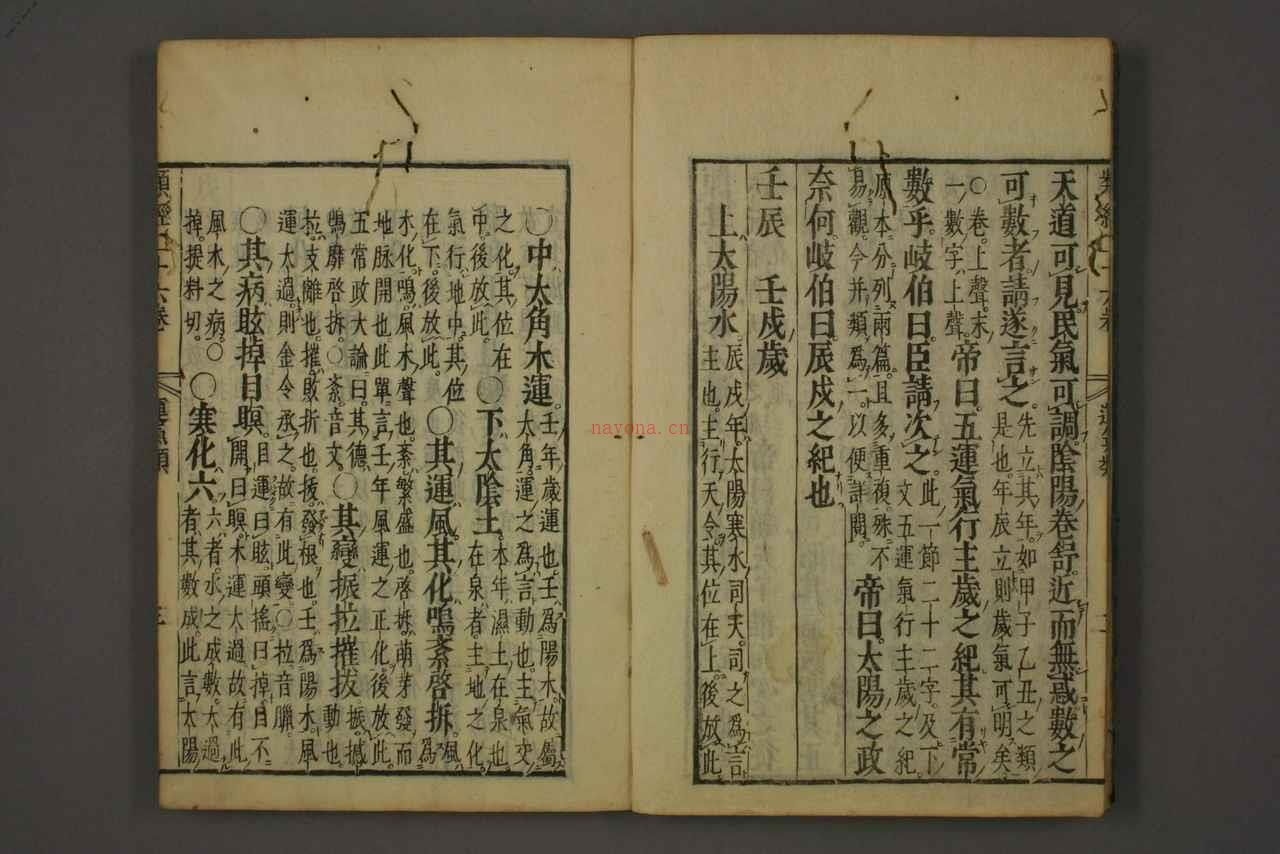 天道可見民氣可調陰陽卷舒近而無惑數之
可數者請遂言之先立其年如甲子乙丑之類是也年辰立則歲氣可明矣
○卷上聲末一數字上聲帝曰五運氣行主歲之紀其有常
數乎岐伯曰臣請次之此一節二十二字及下文五運氣行主歲之紀
原本分列兩篇且多重複殊不易觀今并類爲一以便詳閱帝曰太陽之政
奈何岐伯曰辰戌之紀也
壬辰 壬戌歲
上太陽水辰戌年太陽寒水司天司之爲言主也主行天令其位在上後放此
○中太角木運壬年歲運也壬爲陽木故屬太角運之爲言動也主氣交
之化其位在中後放此○下太陰土本年濕土在泉也在泉者主地之化
氣行地中其位在下後放此○其運風其化鳴紊啓拆風爲
木化鳴風木聲也紊繁盛也啓拆萌芽發而地脉開也此單言壬年風運之正化後放此
五常政大論曰其德鳴靡啓拆○紊音文○其變振拉摧拔振撼動也
拉支離也摧敗折也拔發根也壬爲陽木風運太過則金令承之故有此變○拉音臘
○其病眩掉目瞑目運曰眩頭搖曰掉目不開曰瞑木運太過故有此
風木之病○掉提料切○寒化六六者水之成數太過者其數成此言太陽
類經二十六卷
運氣類
nayona.cn